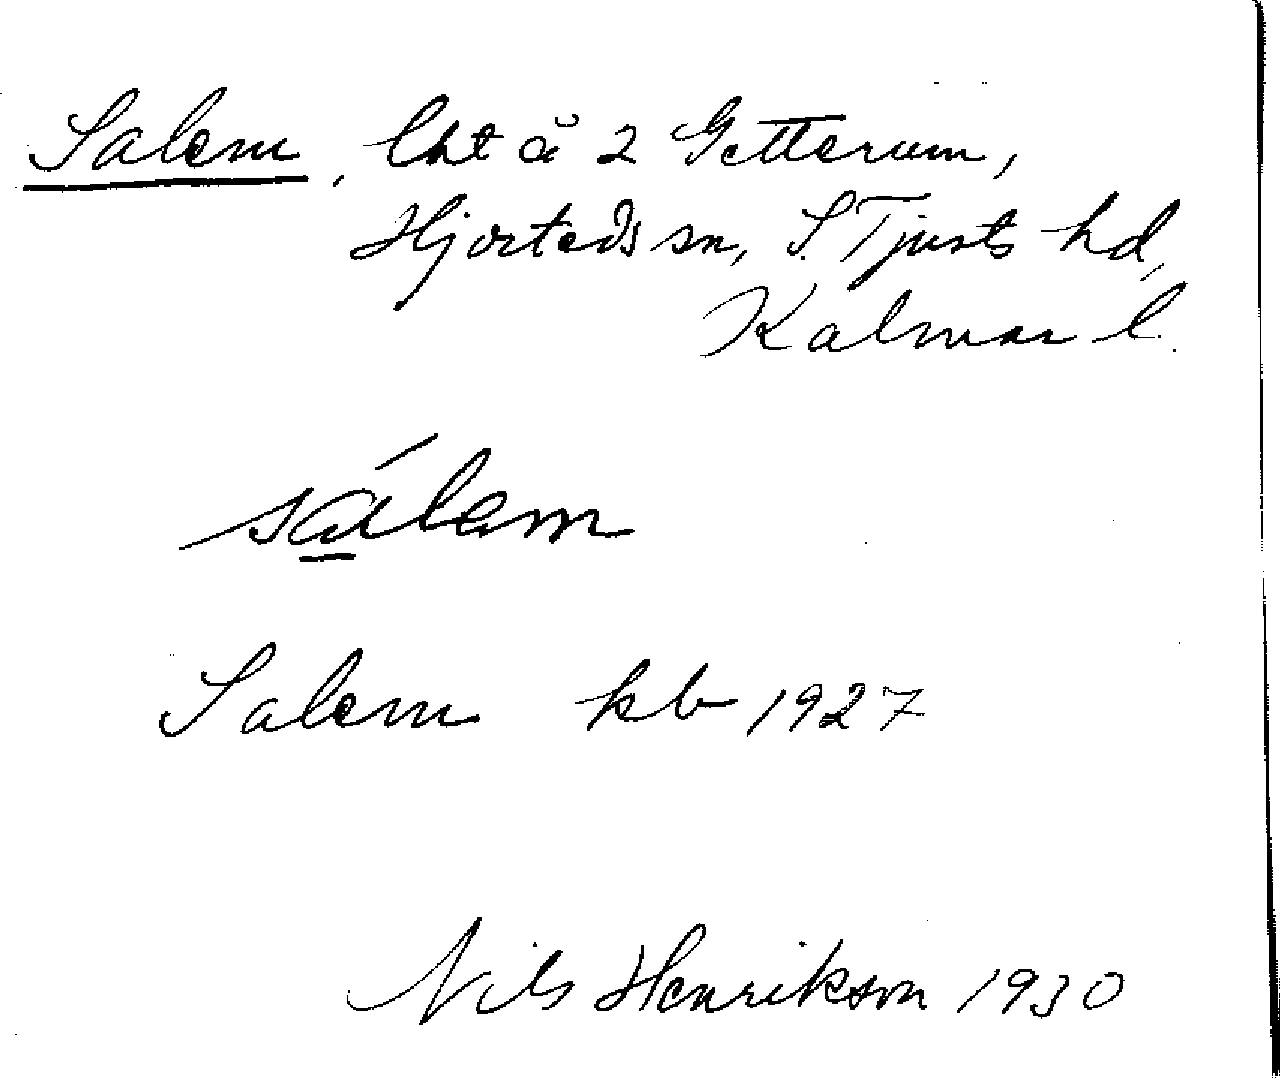 Salem, lht å 2 Getterum,
Hjorteds sn, S. Tjusts hd,
Kalmar l.
sálem
Salem kb 1927
Nils Henrikson 1930